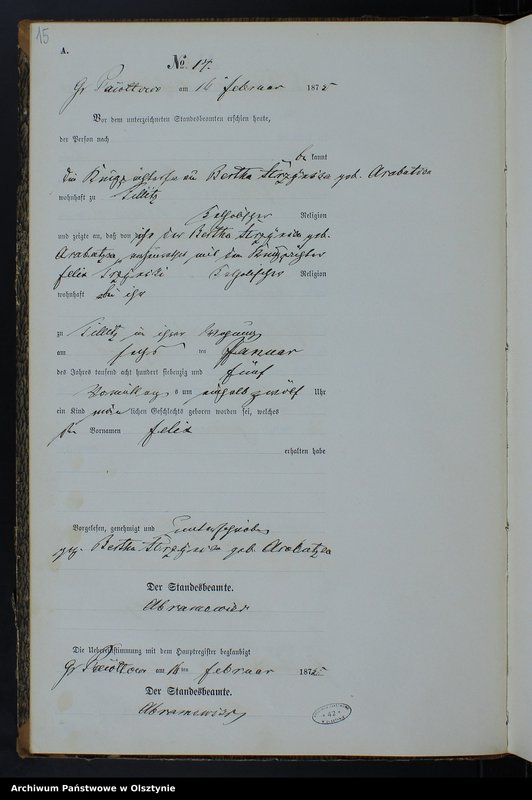 15
A.
No. 17.
Gr Paiöttowo am 16 Februar 1875
Vor dem unterzeichneten Standesbeamten erschien heute,
der Person nach
be kannt
die Bertha geb. Arabatzka
wohnhaft zu Tillitz
Katholischer Religion
und zeigte an, daß von ihr der Bertha geb.
Arabatzka mit dem
Felix Katholischer Religion
wohnhaft bei ihr
zu Tillitz in ihrer Wohnung
am sechs ten Januar
des Jahres tausend acht hundert siebenzig und fünf
Vormittag s um einhalb zwölf Uhr
ein Kind männ lichen Geschlechts geboren worden sei, welches
Vornamen Felix
erhalten habe
Vorgelesen, genehmigt und unterschrieben
gez. Bertha geb. Arabatzka
Der Standesbeamte.
Abramowski
Die Uebereinstimmung mit dem Hauptregister beglaubigt
Gr Paiöttowo am 16 ten Februar 1875
Der Standesbeamte.
Abramowski
42
Archiwum Państwowe w Olsztynie